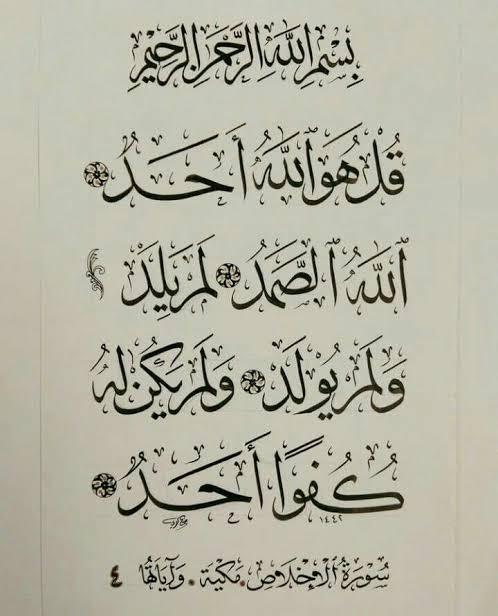 بِسْمِ اللَّهِ الرَّحْمَنِ الرَّحِيمِ
قُلْ هُوَ ٱللَّهُ أَحَدٌ
ٱللَّهُ ٱلصَّمَدُ لَمْ يَلِدْ
وَلَمْ يُولَدْ وَلَمْ يَكُن لَّهُ
كُفُوًا أَحَدٌ
١٤٤٢
سُورَةُ ٱلْإِخْلَاصِ مَكِّيَّة وَآيَاتُهَا ٤